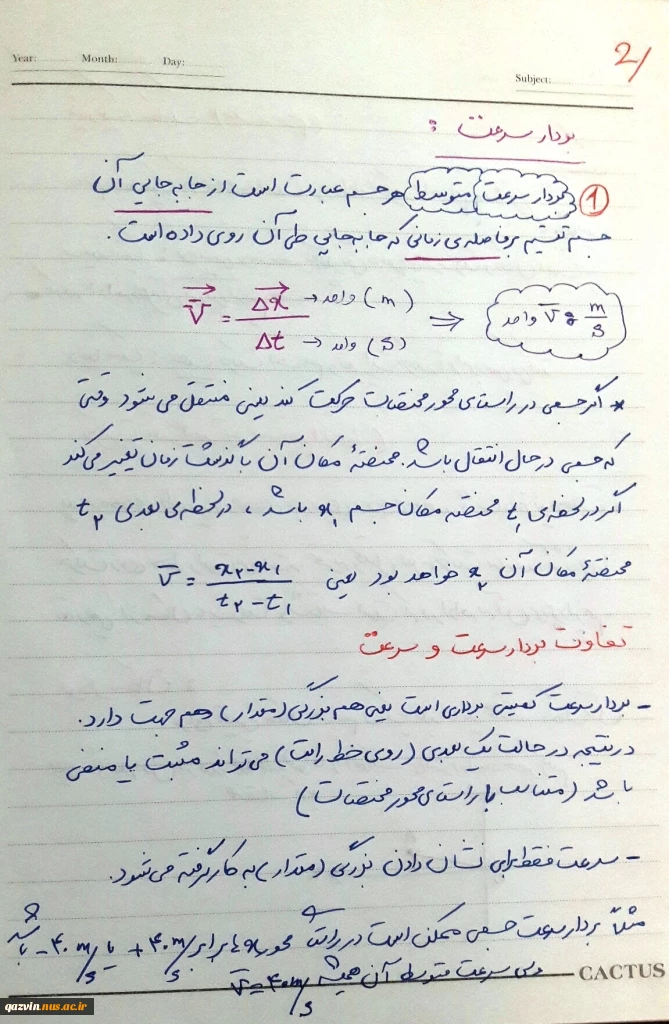 2/
Year: Month: Day:
Subject:
بردار سرعت :
① بردار سرعت متوسط هر جسم عبارت است از جابه جایی آن
جسم تقسیم بر فاصله ی زمانی که جابه جایی طی آن روی داده است.
V̄ = Δx / Δt واحد (m) واحد (s) ⇒ واحد V̄ : m/s
* اگر جسمی در راستای محور مختصات حرکت کند یعنی منتقل می شود وقتی
که جسمی در حال انتقال باشد. مختصهٔ مکان آن با گذشت زمان تغییر می کند
اگر در لحظه ای t₁ مختصه مکان جسم x₁ باشد ، در لحظه ی بعدی t₂
مختصهٔ مکان آن x₂ خواهد بود یعنی V̄ = x₂-x₁ / t₂-t₁
تفاوت بردار سرعت و سرعت
- بردار سرعت کمیتی برداری است یعنی هم بزرگی (مقدار) و هم جهت دارد.
در نتیجه در حالت یک بعدی (روی خط راست) می تواند مثبت یا منفی
باشد (متناسب با راستای محور مختصات)
- سرعت فقط برای نشان دادن بزرگی (مقدار) به کار گرفته می شود.
مثلاً بردار سرعت جسمی ممکن است در راستای محور xها برابر +۴۰ m/s یا -۴۰ m/s باشد
ولی سرعت متوسط آن همیشه V̄=۴۰ m/s
CACTUS
qazvin.nus.ac.ir